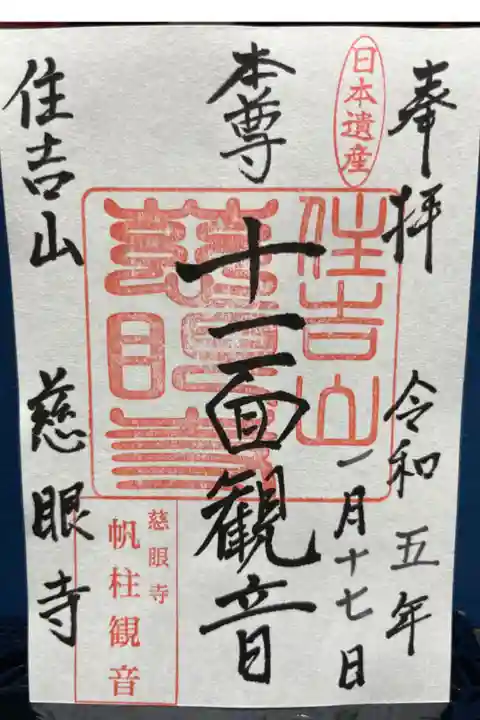 奉拝
令和五年
一月十七日
日本遺産
本尊
十一面観音
住吉山
慈眼寺
住吉山
慈眼寺
帆柱観音